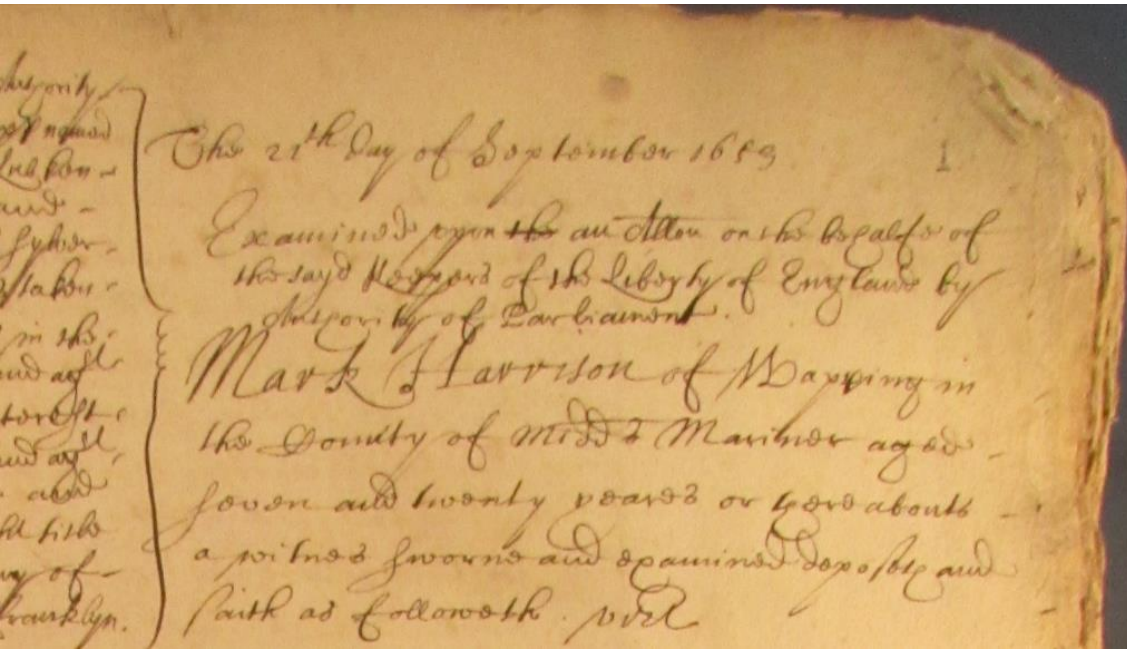 Authority
named
and
Sylver
taken
in the
and agt
terest
and agt
and
title
of
Francklyn.
The 21th day of September 1653
1
Examined upon the an Allon on the behalfe of
the sayd Keepers of the Liberty of England by
Authority of Parliament.
Mark Harrison of Wapping in
the County of Middx Mariner aged
seven and twenty yeares or thereabouts
a witnes sworne and examined deposeth and
saith as followeth. vizt